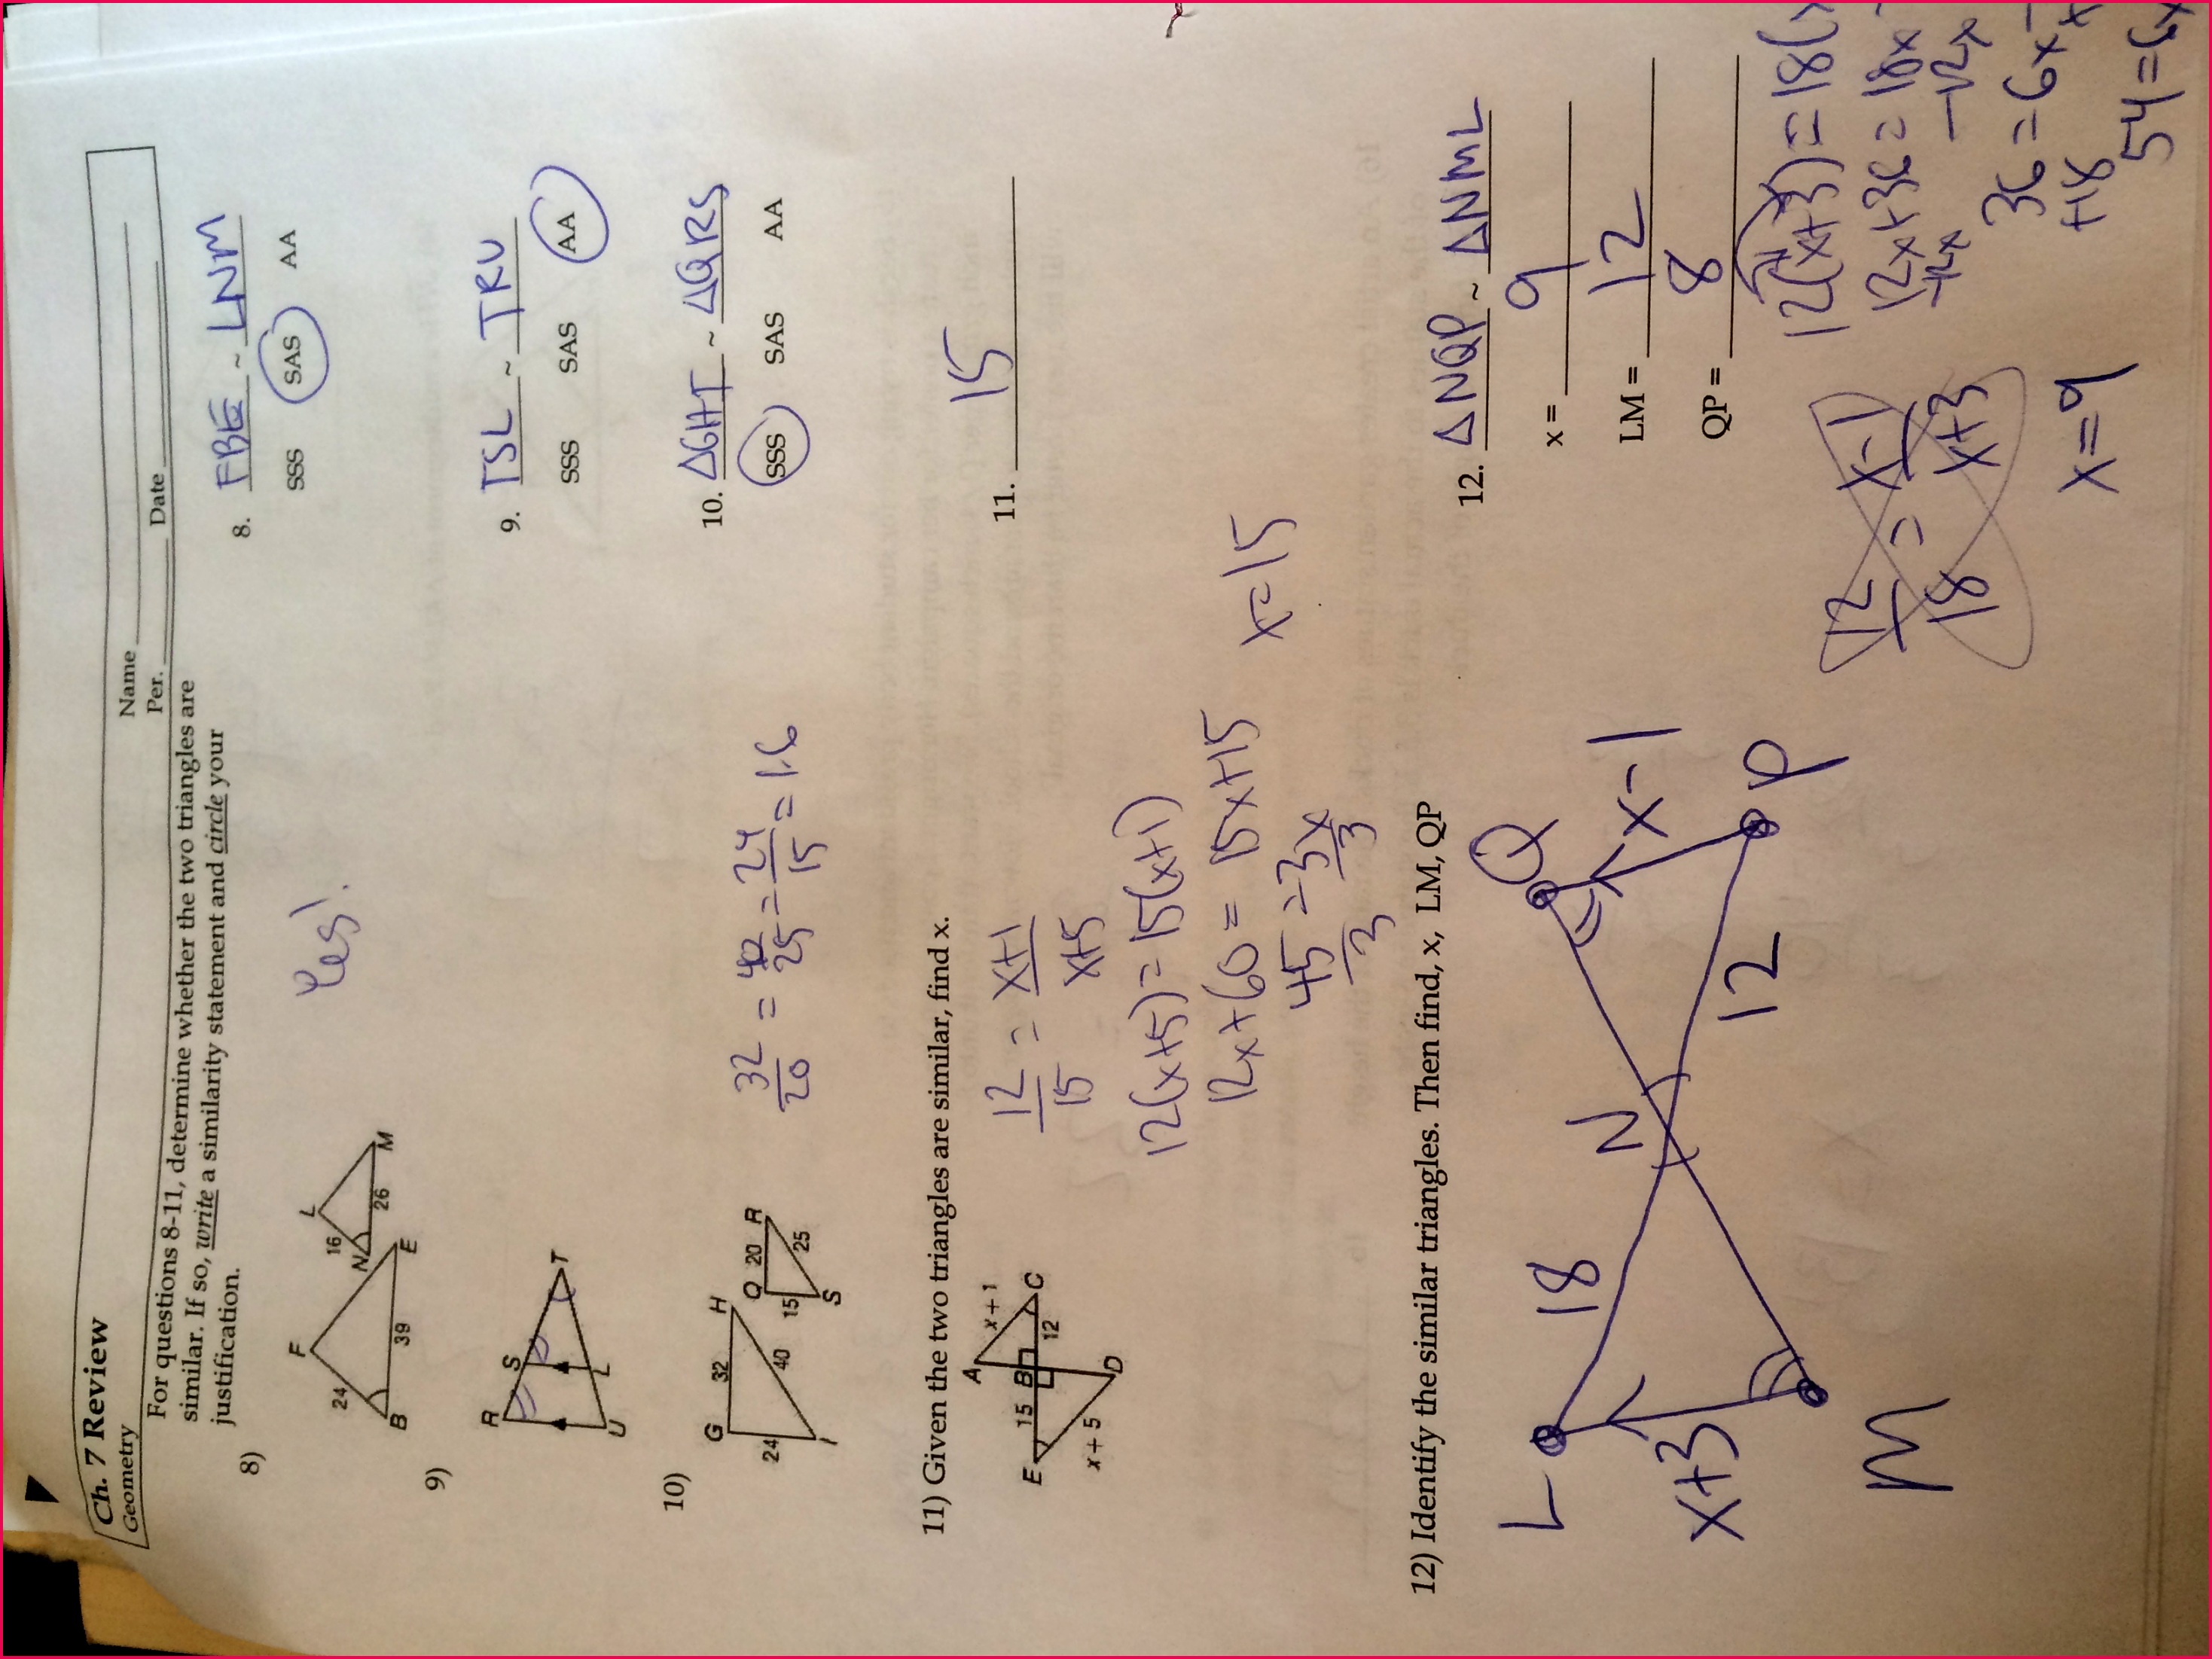 Ch. 7 Review
Geometry
Name
Per. Date
For questions 8-11, determine whether the two triangles are
similar. If so, write a similarity statement and circle your
justification.
8)
F
24
B
39
E
L
16
N
26
M
Yes!
8. FBE ~ LNM
SSS SAS AA
9)
R
S
T
U
L
9. TSL ~ TRU
SSS SAS AA
10)
G
32
H
24
40
I
Q
20
R
15
25
S
32/20 = 40/25 = 24/15 = 1.6
10. ΔGHI ~ ΔQRS
SSS SAS AA
11) Given the two triangles are similar, find x.
A
x + 1
E
15
B
12
C
x + 5
D
12/15 = x+1/x+5
12(x+5) = 15(x+1)
12x+60 = 15x+15
45/3 = 3x/3
x=15
11. 15
12) Identify the similar triangles. Then find, x, LM, QP
L
18
N
Q
x-1
x+3
12
P
M
12. ΔNQP ~ ΔNML
x = 9
LM = 12
QP = 8
12/18 = x-1/x+3
12(x+3) = 18(
12x+36 = 18x
-12x -12x
36 = 6x
+18
54 = 6x
x=9